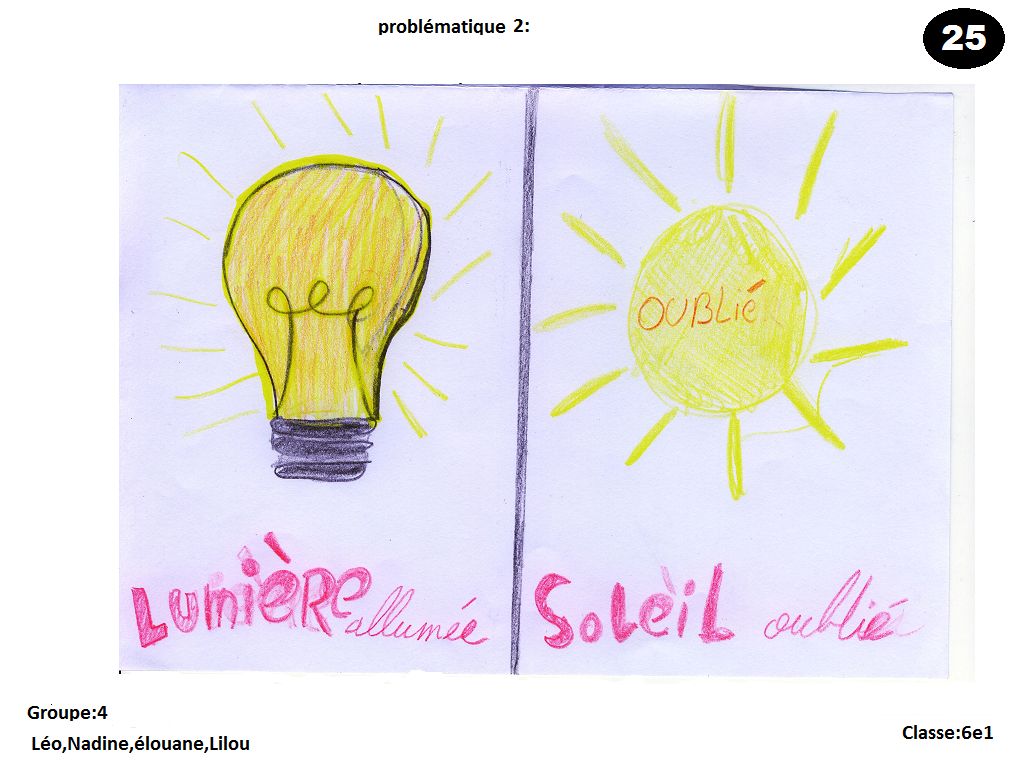 problématique 2:
25
OUBLIÉ
LUMIÈRE allumée
SOLEIL oublié
Groupe:4
Léo,Nadine,élouane,Lilou
Classe:6e1